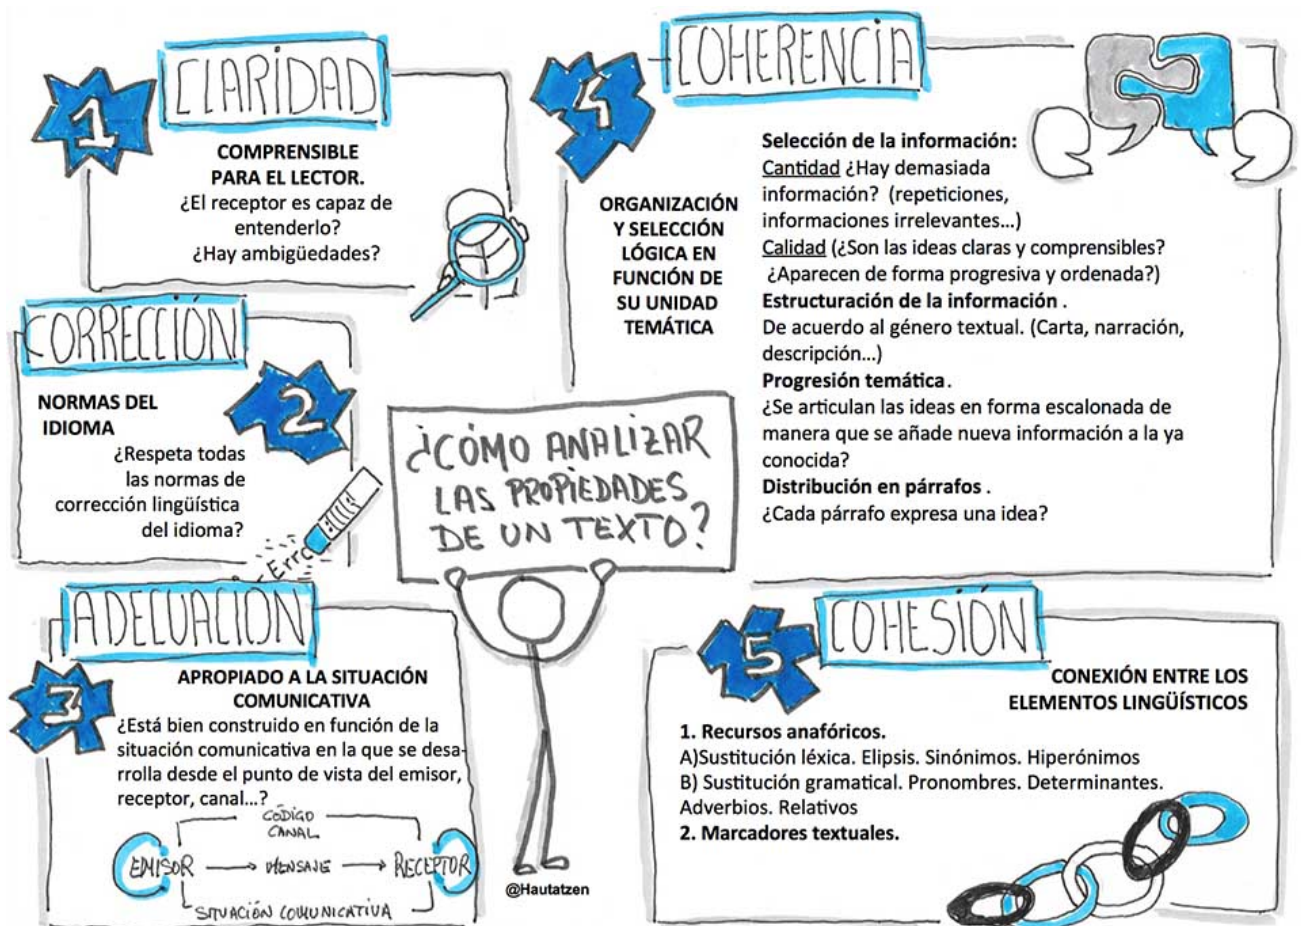 CLARIDAD
1
COMPRENSIBLE
PARA EL LECTOR.
¿El receptor es capaz de
entenderlo?
¿Hay ambigüedades?
CORRECCIÓN
2
NORMAS DEL
IDIOMA
¿Respeta todas
las normas de
corrección lingüística
del idioma?
Erro
ADECUACIÓN
3
APROPIADO A LA SITUACIÓN
COMUNICATIVA
¿Está bien construido en función de la
situación comunicativa en la que se desa-
rrolla desde el punto de vista del emisor,
receptor, canal...?
CÓDIGO
CANAL
EMISOR MENSAJE RECEPTOR
SITUACIÓN COMUNICATIVA
¿CÓMO ANALIZAR
LAS PROPIEDADES
DE UN TEXTO?
@Hautatzen
4
COHERENCIA
ORGANIZACIÓN
Y SELECCIÓN
LÓGICA EN
FUNCIÓN DE
SU UNIDAD
TEMÁTICA
Selección de la información:
Cantidad ¿Hay demasiada
información? (repeticiones,
informaciones irrelevantes...)
Calidad (¿Son las ideas claras y comprensibles?
¿Aparecen de forma progresiva y ordenada?)
Estructuración de la información .
De acuerdo al género textual. (Carta, narración,
descripción...)
Progresión temática.
¿Se articulan las ideas en forma escalonada de
manera que se añade nueva información a la ya
conocida?
Distribución en párrafos .
¿Cada párrafo expresa una idea?
5
COHESIÓN
CONEXIÓN ENTRE LOS
ELEMENTOS LINGÜÍSTICOS
1. Recursos anafóricos.
A)Sustitución léxica. Elipsis. Sinónimos. Hiperónimos
B) Sustitución gramatical. Pronombres. Determinantes.
Adverbios. Relativos
2. Marcadores textuales.